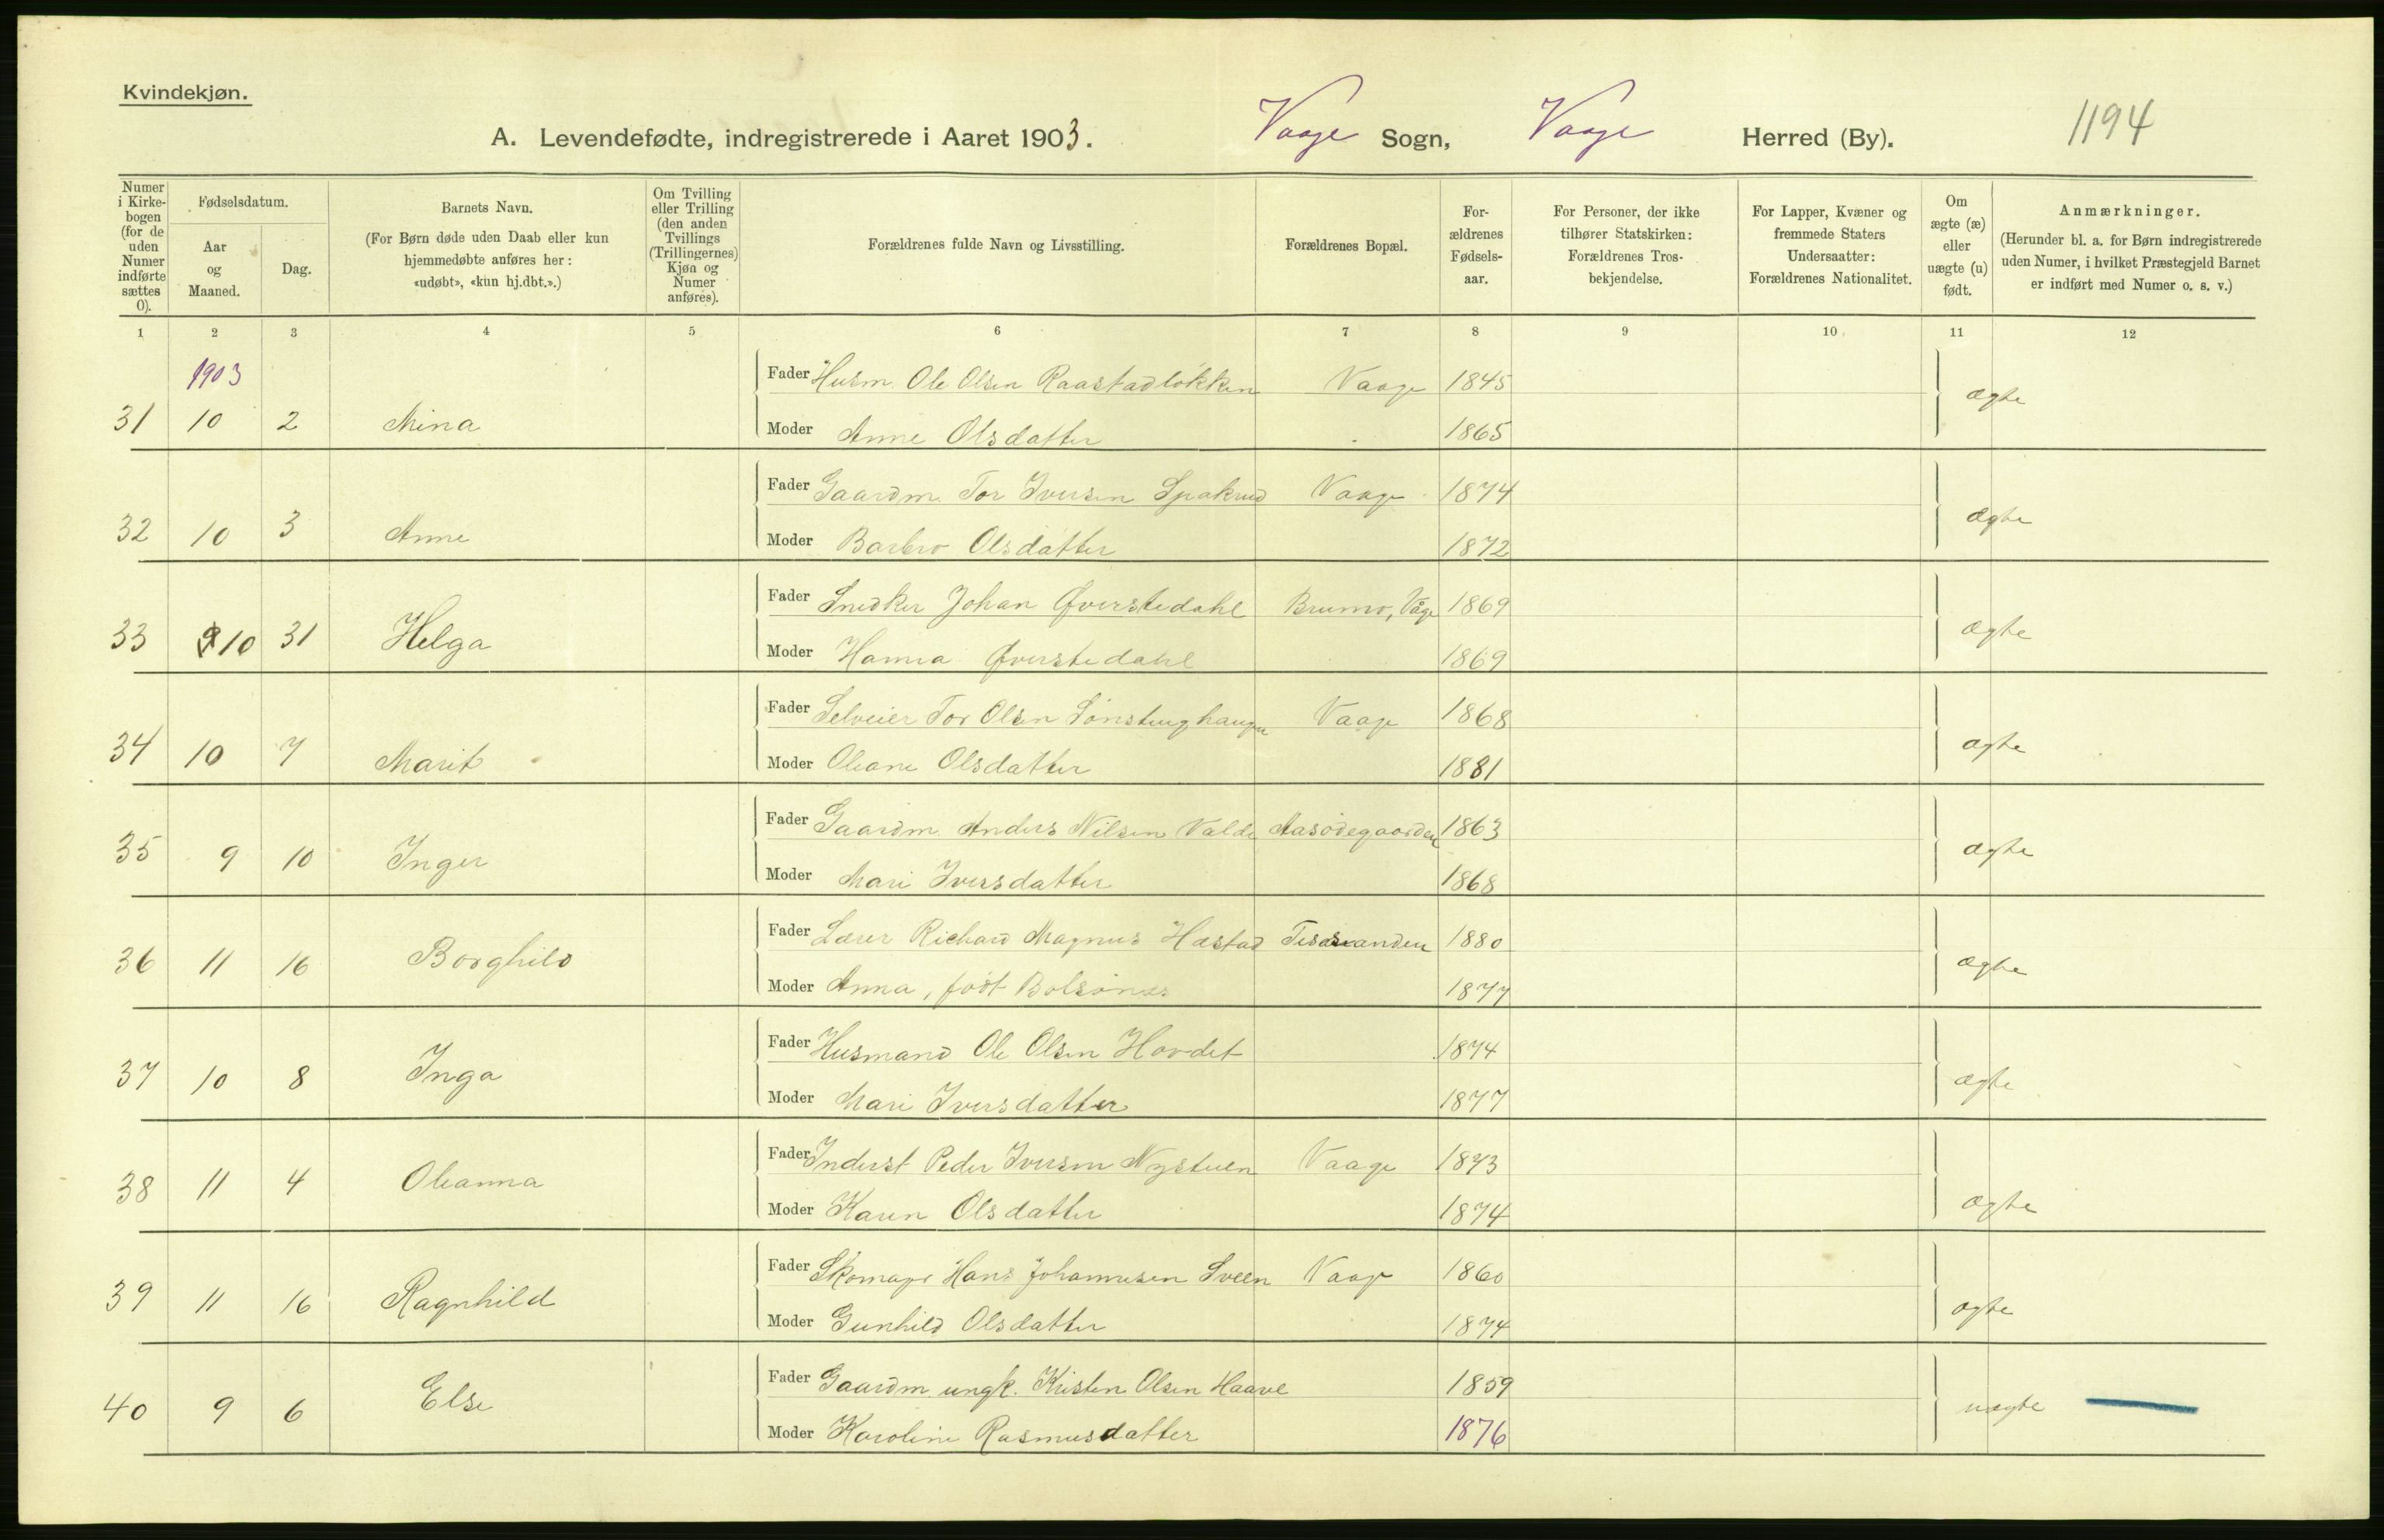 Kvindekjøn.
A. Levendefødte, indregistrerede i Aaret 1903. Vaage Sogn, Vaage Herred (By). 1194
Numer i Kirke-bogen (for de uden Numer indførte sættes 0).
Fødselsdatum.
Aar og Maaned.
Dag.
Barnets Navn.
(For Børn døde uden Daab eller kun hjemmedøbte anføres her: «udøbt», «kun hj.dbt.».)
Om Tvilling eller Trilling (den anden Tvillings (Trillingernes) Kjøn og Numer anføres).
Forældrenes fulde Navn og Livsstilling.
Forældrenes Bopæl.
For-ældrenes Fødsels-aar.
For Personer, der ikke tilhører Statskirken: Forældrenes Tros-bekjendelse.
For Lapper, Kvæner og fremmede Staters Undersaatter: Forældrenes Nationalitet.
Om ægte (æ) eller uægte (u) født.
Anmærkninger.
(Herunder bl. a. for Børn indregistrerede uden Numer, i hvilket Præstegjeld Barnet er indført med Numer o. s. v.)
1 2 3 4 5 6 7 8 9 10 11 12
1903
Fader Husm. Ole Olsen Raastadløkken Vaage 1845
31 10 2 Mina ægte
Moder Anne Olsdatter 1865
Fader Gaardm. Tor Iversen Spakrud Vaage 1874
32 10 3 Anne ægte
Moder Barbro Olsdatter 1872
Fader Snedker Johan Øverstedahl Våge 1869
33 10 31 Helga ægte
Moder Hanna Øverstedahl 1869
Fader Selveier Tor Olsen Vaage 1868
34 10 7 Marit ægte
Moder Oleane Olsdatter 1881
Fader Gaardm. Anders Nilsen Valde Aasødegaarden 1863
35 9 10 Inger ægte
Moder Mari Iversdatter 1868
Fader Lærer Richard Magnus Hæstad Tessanden 1880
36 11 16 Borghild ægte
Moder Anna, født Bolsønes 1877
Fader Husmand Ole Olsen Hovdet 1874
37 10 8 Inga ægte
Moder Mari Iversdatter 1877
Fader Inderst Peder Iversen Nystuen Vaage 1873
38 11 4 Oleanna ægte
Moder Karen Olsdatter 1874
Fader Skomager Hans Johannesen Sveen Vaage 1860
39 11 16 Ragnhild ægte
Moder Gunhild Olsdatter 1874
Fader Gaardm. ungk. Kristen Olsen Haave 1859
40 9 6 Else uægte
Moder Karoline Rasmusdatter 1876